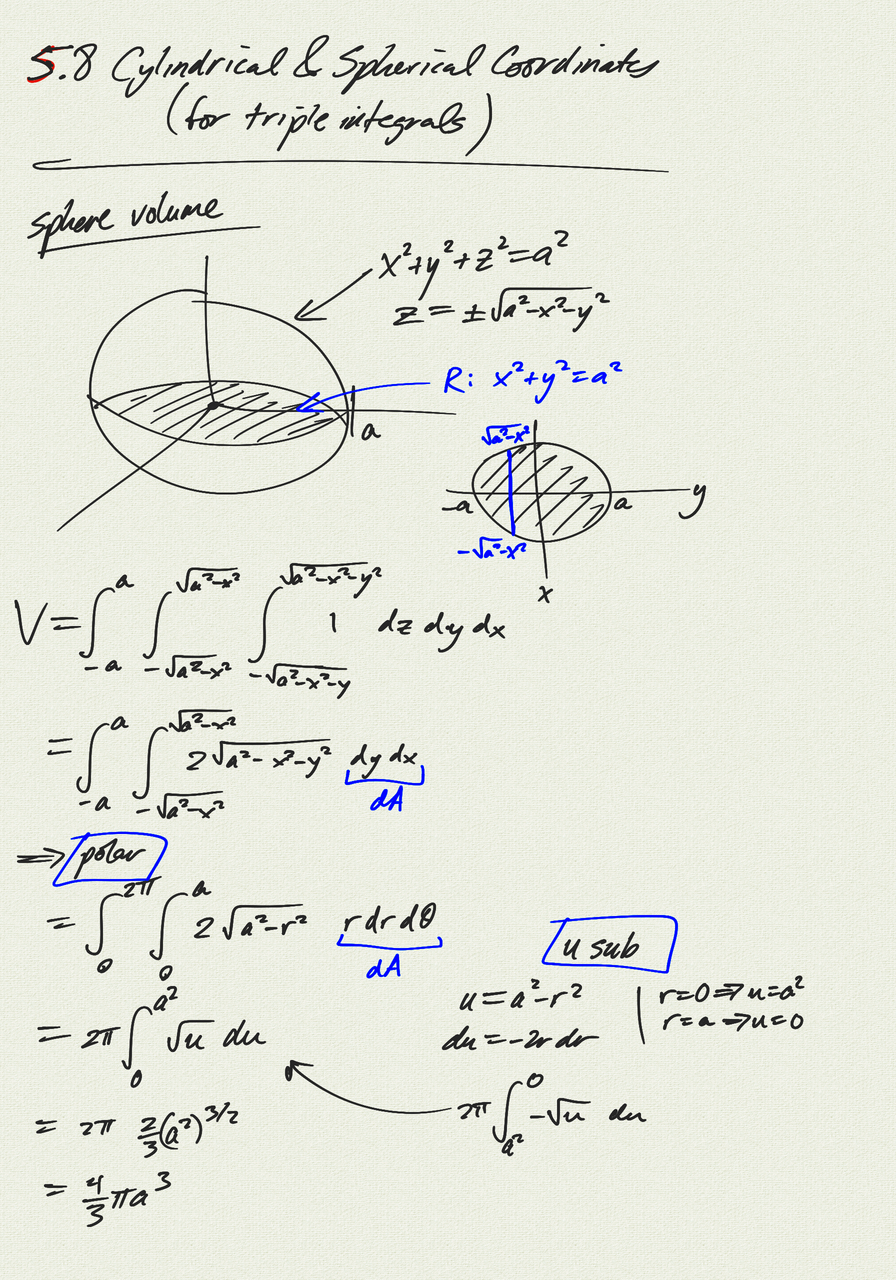 5.8 Cylindrical & Spherical Coordinates
(for triple integrals)
sphere volume
x²+y²+z²=a²
z = ±√(a²-x²-y²)
R: x²+y²=a²
a
√(a²-x²)
-a a y
-√(a²-x²)
x
V = ∫_{-a}^{a} ∫_{-√(a²-x²)}^{√(a²-x²)} ∫_{-√(a²-x²-y)}^{√(a²-x²-y²)} 1 dz dy dx
= ∫_{-a}^{a} ∫_{-√(a²-x²)}^{√(a²-x²)} 2√(a²-x²-y²) dy dx
dA
⇒ polar
= ∫_0^{2π} ∫_0^a 2√(a²-r²) r dr dθ
dA
u sub
u = a²-r² | r=0 ⇒ u=a²
du = -2r dr | r=a ⇒ u=0
= 2π ∫_0^{a²} √u du
2π ∫_{a²}^0 -√u du
= 2π 2/3 (a²)^{3/2}
= 4/3 πa³